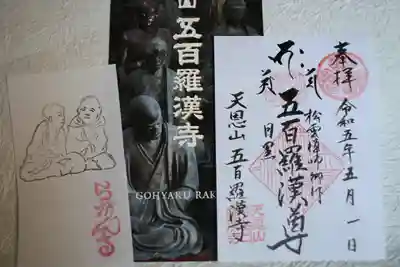 山五百羅漢寺
GOHYAKU RAK
らかんさん
奉拝
令和五年五月一日
松雲禅師御作
五百羅漢尊
目黒
天恩山 五百羅漢寺
天恩山